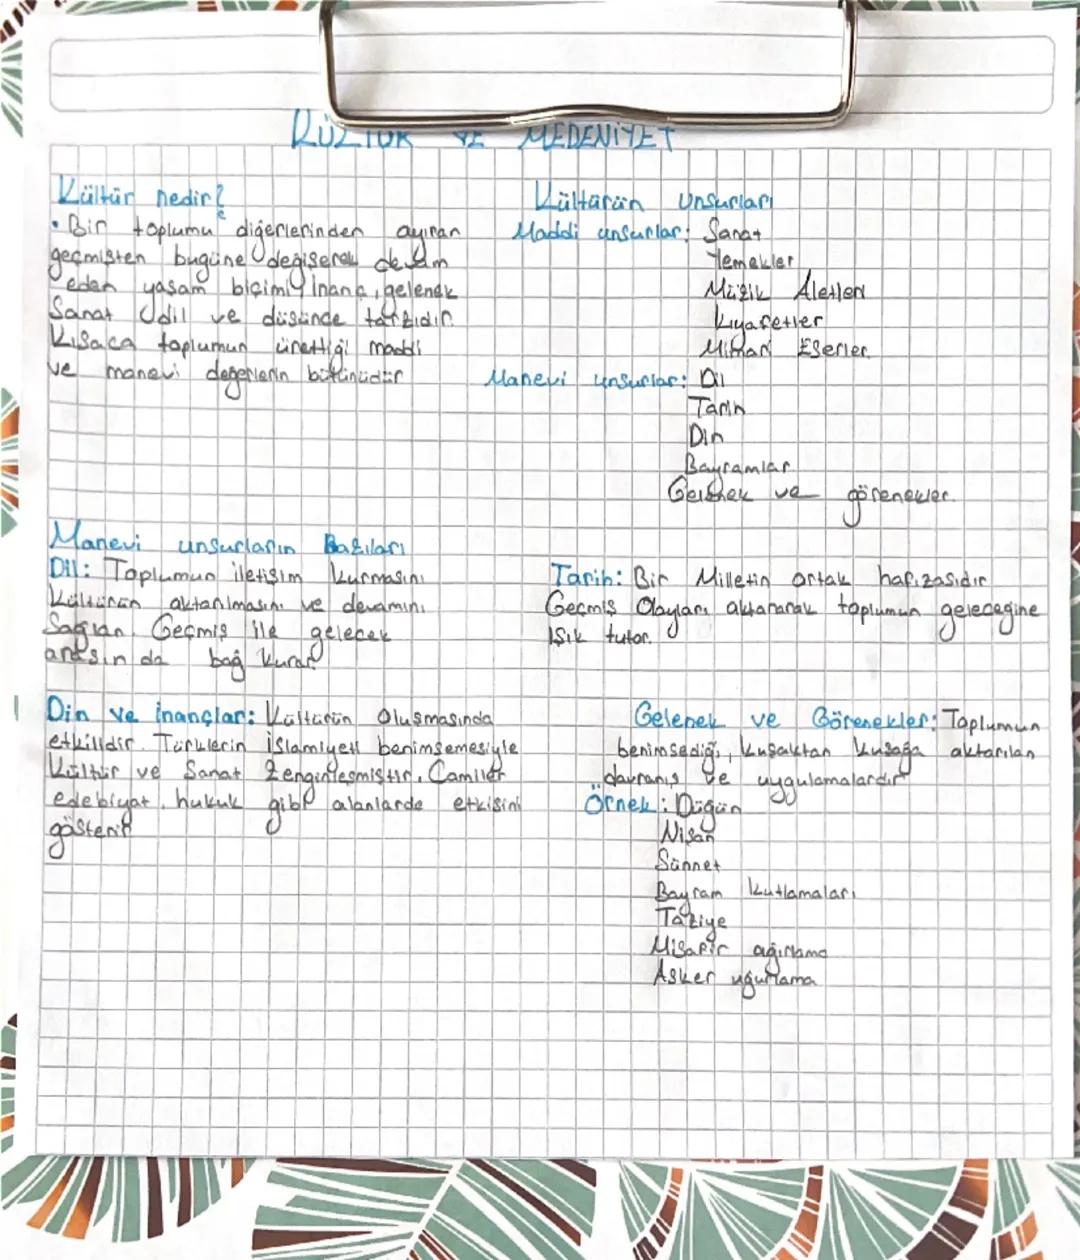 KÜLTÜR VE MEDENİYET
Kültür nedir?
• Bir toplumu diğerlerinden ayıran
geçmişten bugüne değişerek devam
eden yaşam biçimi, inanç, gelenek
Sanat, dil ve düşünce tarzıdır.
Kısaca toplumun ürettiği maddi
ve manevi değerlerin bütünüdür
Kültürün Unsurları
Maddi unsurlar: Sanat
Yemekler
Müzik Aletleri
Kıyafetler
Mimari Eserler
Manevi unsurlar: Dil
Tarih
Din
Bayramlar
Gelenek ve görenekler.
Manevi unsurların Bazıları
Dil: Toplumun iletişim kurmasını
Kültürün aktarılmasını ve devamını
Sağlar. Geçmiş ile gelecek
arasın da bağ kurar
Tarih: Bir Milletin ortak hafızasıdır
Geçmiş Olayları aktararak toplumun geleceğine
Işık tutar.
Din ve İnançlar: Kültürün Oluşmasında
etkilidir. Türklerin İslamiyeti benimsemesiyle
Kültür ve Sanat Zenginleşmiştir. Camiler
edebiyat, hukuk gibi alanlarde etkisini
gösterir
Gelenek ve Görenekler: Toplumun
benimsediği, kuşaktan kuşağa aktarılan
davranış ve uygulamalardır
Örnek: Düğün
Nişan
Sünnet
Bayram Kutlamaları
Taziye
Misafir ağırlama
Asker uğurlama